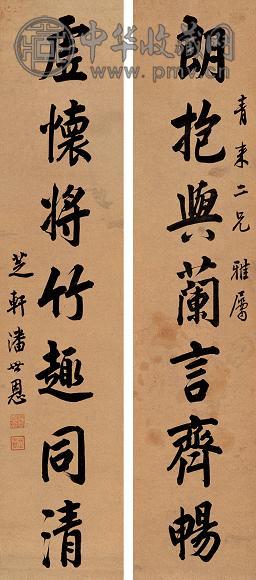 朗抱與蘭言齊暢
青來二兄 雅屬
虛懷將竹趣同清
芝軒潘世恩
中华收藏网
www.pmw.com